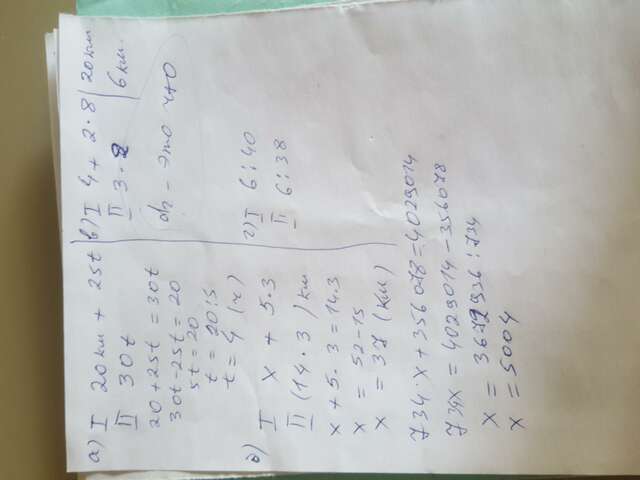 а) I 20 км + 25t
II 30t
20 + 25t = 30t
30t - 25t = 20
5t = 20
t = 20:5
t = 4 (ч)
в) I 4 + 2·8 | 20 км
II 3·2 | 6 км.
- это что
д) I x + 5·3
II (14·3) км
x + 5·3 = 14·3
x = 52-15
x = 37 (км)
г) I 6:40
II 6:38
734·x + 356078 = 4029014
734x = 4029014 - 356078
x = 3672936 : 734
x = 5004